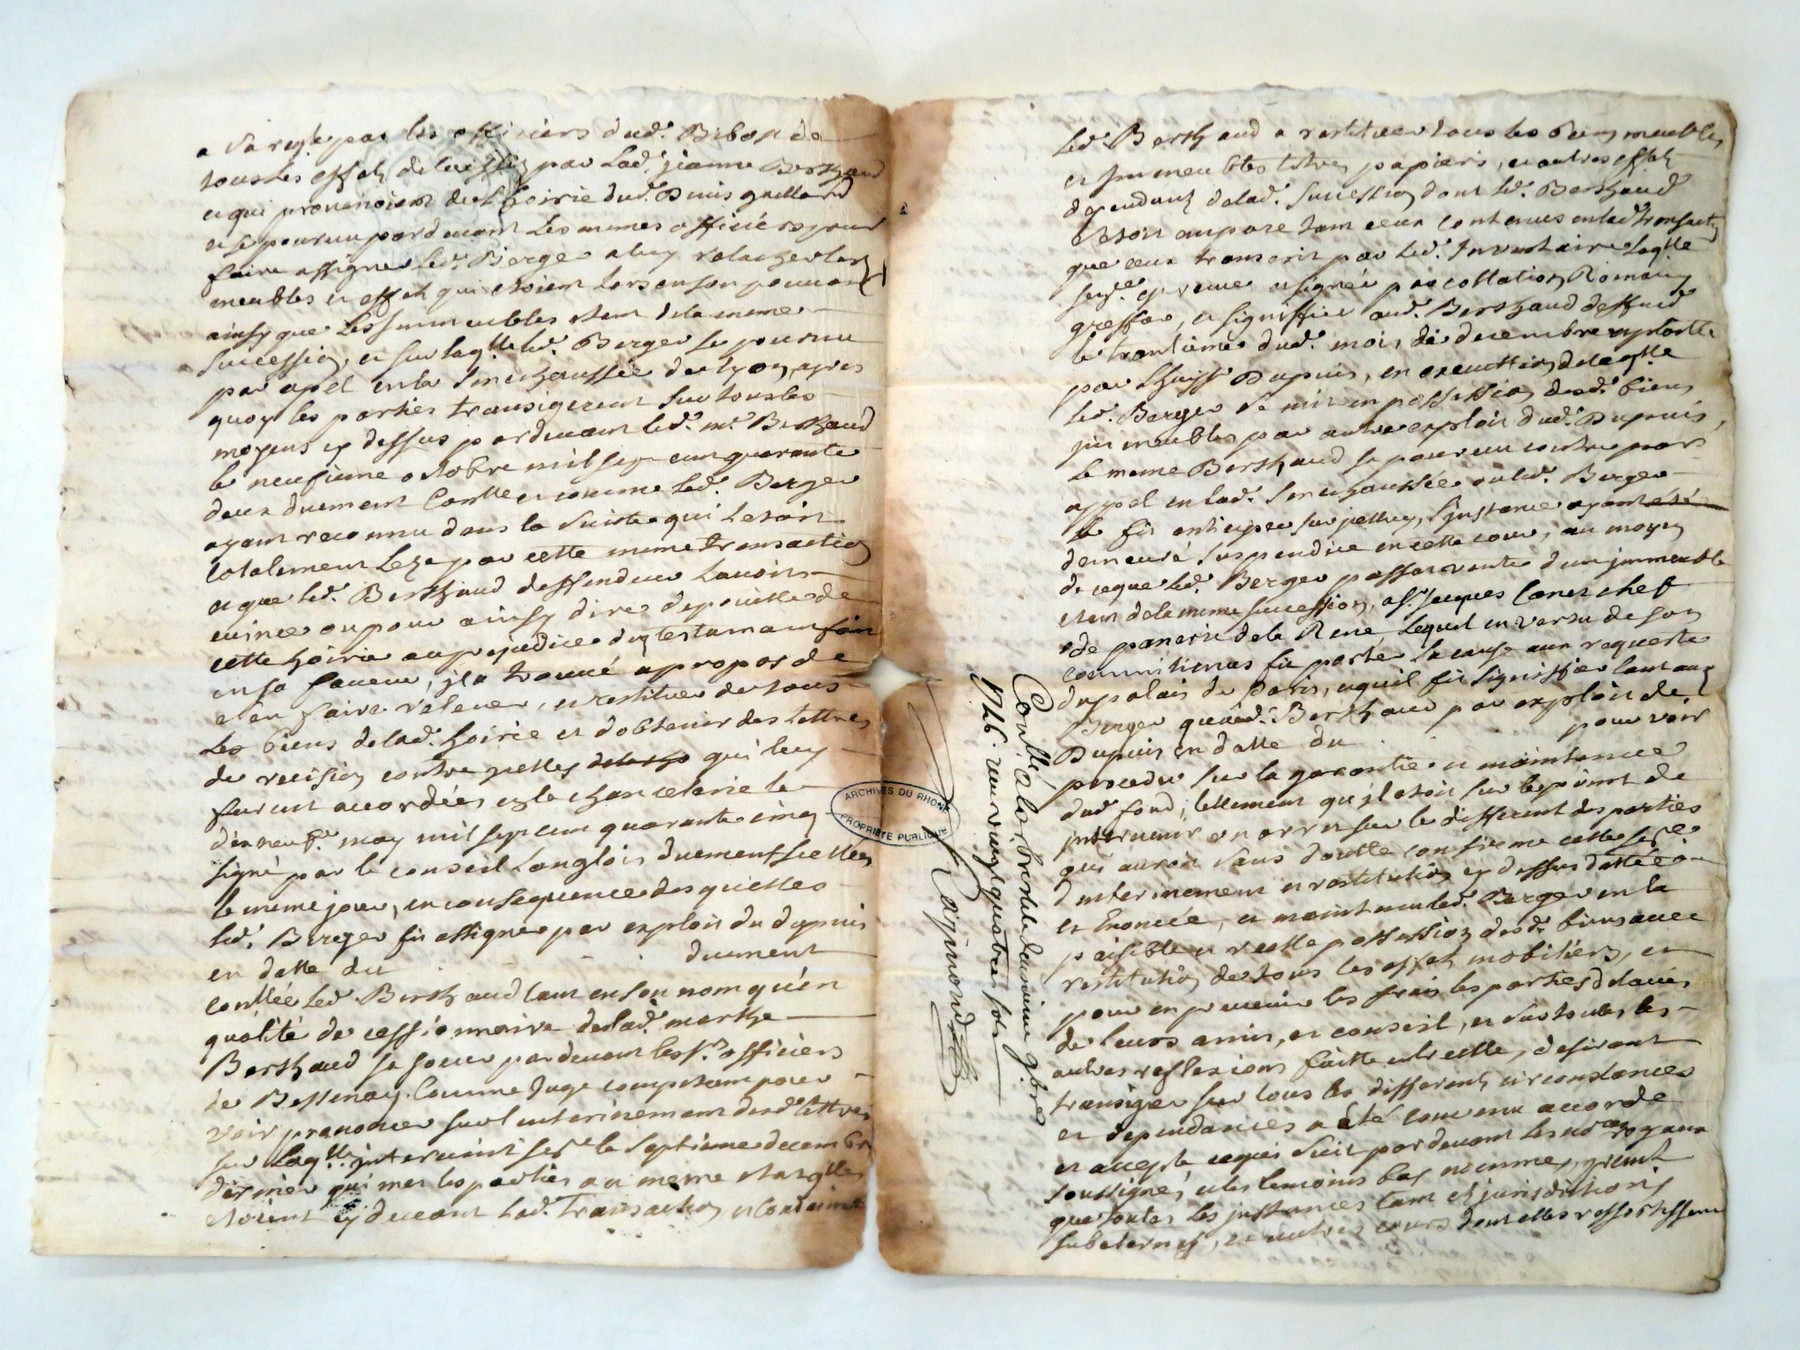 a sa regle par les officiers dud. Bibost de
tous les effets delaissés par Lad. jeanne Berthaud
et qui provenoient de l'hoirie dud. Denis guillard
et se pourvu pardevant Les memes officiers pour
faire assigner led. Berger a luy relacher les
meubles et effets qui etoient lors en son pouvoir
ainsy que Les immeubles etant de la meme
succession, et sur laqlle led. Berger se pourvu
par apel en la Senechaussée de Lyon, apres
quoy les parties transigerent sur tous les
moyens cy dessus pardevant led. me Berthaud
le neufieme octobre mil sept cent quarante
deux duement Conllé et comme led. Berger
ayant reconnu dans la suitte qui Letoit
totalement Lezé par cette meme transaction
et que led. Berthaud deffendeur L'avoit
evincé ou pour ainsy dire depouillé de
cette hoirie au prejudice du testament fait
en sa faveur, il a trouvé a propos de
s'en faire relever, et restituer de tous
Les biens de lad. hoirie et d'obtenir des lettres
de recision contre icelles qui luy
furent accordées en la chancelerie le
dix neuf.e may mil sept cent quarante cinq
signé par le conseil Langlois duement scellées
le meme jour, en consequence desquelles
led. Berger fit assigner par exploit du dupuis
en datte du duement
conllée led. Berthaud tant en son nom qu'en
qualité de cessionnaire de lad. marthe
Berthaud sa soeur pardevant les srs officiers
de Bessenay Comme Juge competant pour
voir prononcer sur l'interinement desd. lettres
sur Laqlle intervint sece le septieme decembre
dernier qui met les parties au meme etat qlles
etoient cy devant Lad. transaction et Condamne
led. Berthaud a restituer tous les biens meubles
et immeubles titres papiers, et autres effets
dependants de lad. succession dont led. Berthaud
etoit emparé tant ceux contenus en lad. transaction
que ceux transcrit par led. Inventaire Laqlle
sence et veue et signée par collation Romany
greffier, et signiffiée aud. Berthaud deffendr
le trentieme dud. mois de decembre exploitté
par L'huissr Dupuis, en execution de laqlle
led. Berger se mit en possession desd. biens
immeubles par autre exploit dud. Dupuis,
Le meme Berthaud se pourvu contre par
appel en lad. Senechaussée ou led. Berger
le fit anticiper sur icelluy, L'instance ayant été
demeuré suspendue en cette cour, au moyen
de ce que led. Berger passa vente d'un immeuble
etant de la meme succession, a sr. jacques Canet chef
de paneterie de la Reine, Lequel en vertu de son
committimus fit porter la cause aux requestes
du palais de Paris, et qu'il fit signiffier tant aud.
Berger qu'aud. Berthaud par exploit de
Dupuis en datte du pour voir
proceder sur la garantie et maintenue
dud. fond, tellement qu'il etoit sur le point de
intervenir un arrest sur le different des parties
qui auroit sans doutte confirmé cette sece
d'interinement et restitution cy dessus dattée
et Enoncée, et maintenu led. Berger en la
paisible et reelle possession desd. biens avec
restitution de tous les effets mobiliers, et
pour en prevenir les frais les parties de l'avis
de leurs amis, et conseil, et sur toutes les
autres reflexions faitte entre elles, desirant
transiger sur tous les differents circonstances
et dependances a été convenu accordé
et accepté ce qui suit pardevant les nores royaux
soussignés, et les temoins bas nommés, sçavoir
que toutes les instances tant es jurisdictions
subalternes, et autres cours dont elles ressortissent
Conllé a la bresle le dernier 9bre
1746. reçu vingt quatre sols
Raymond
ARCHIVES DU RHONE
PROPRIETE PUBLIQUE